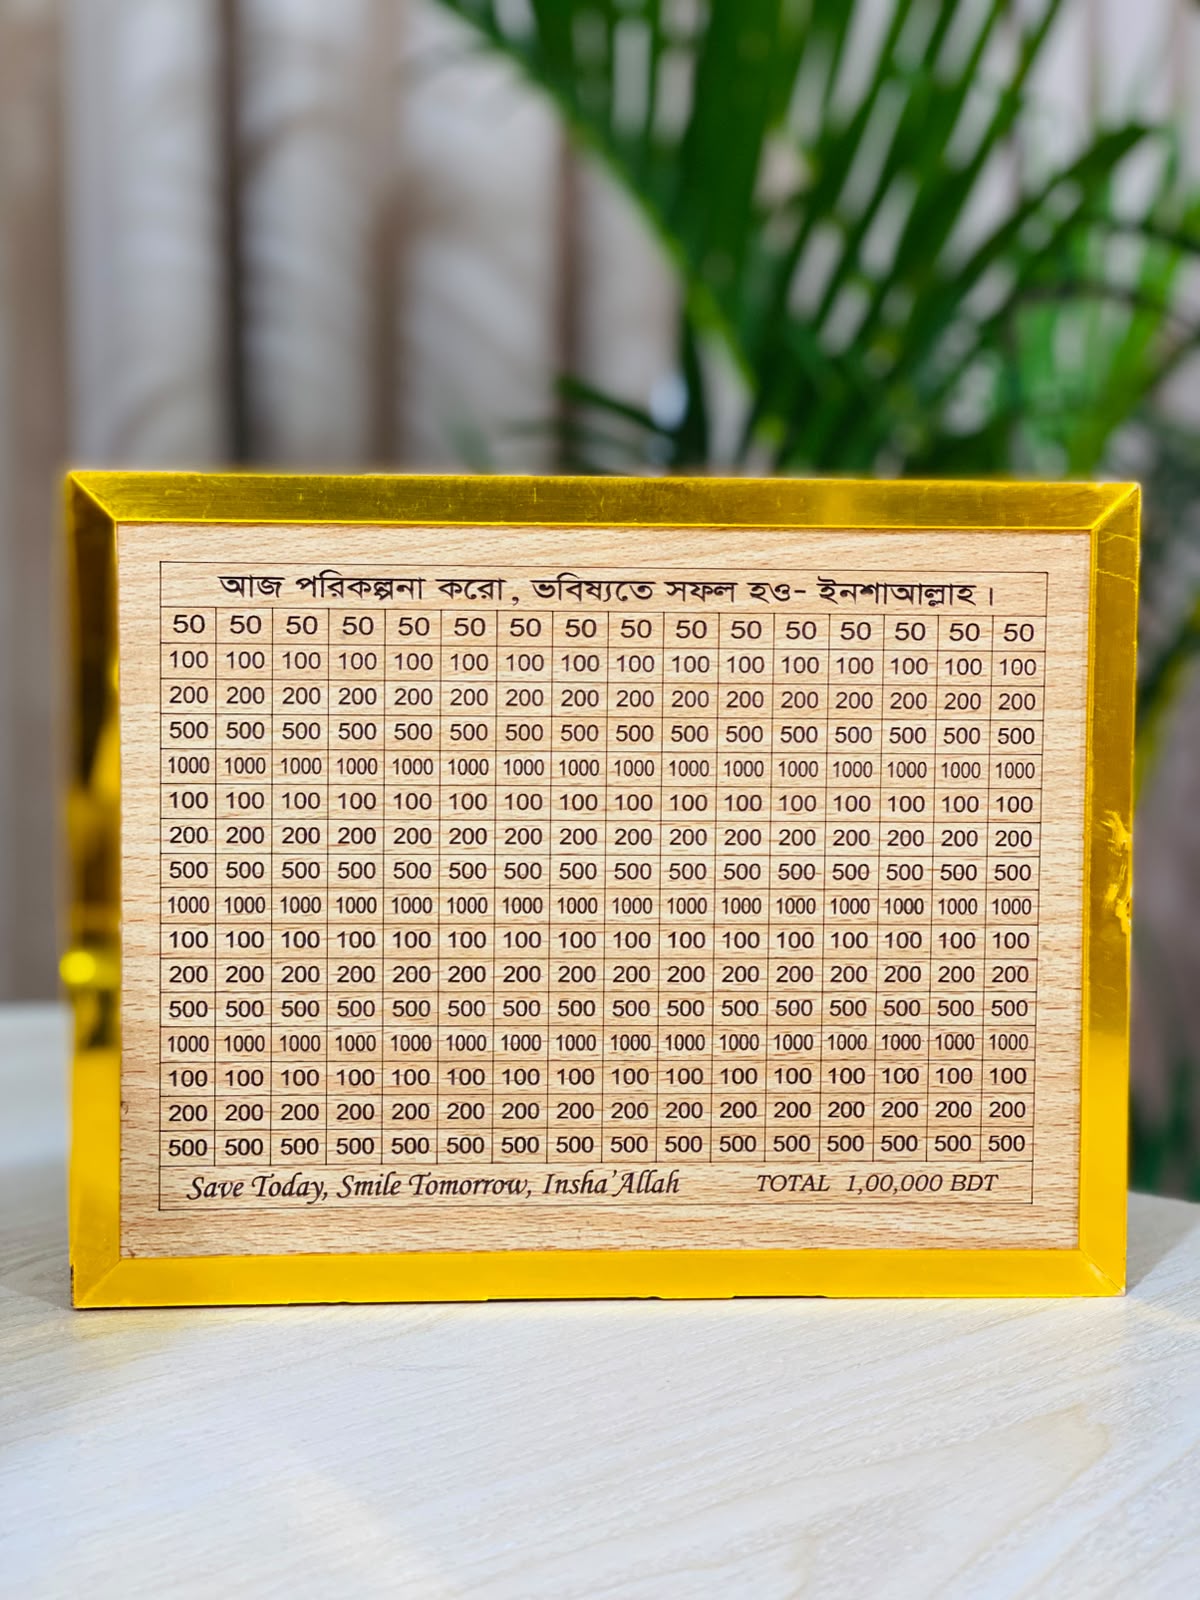 আজ পরিকল্পনা করো, ভবিষ্যতে সফল হও- ইনশাআল্লাহ।
50 50 50 50 50 50 50 50 50 50 50 50 50 50 50 50
100 100 100 100 100 100 100 100 100 100 100 100 100 100 100 100
200 200 200 200 200 200 200 200 200 200 200 200 200 200 200 200
500 500 500 500 500 500 500 500 500 500 500 500 500 500 500 500
1000 1000 1000 1000 1000 1000 1000 1000 1000 1000 1000 1000 1000 1000 1000 1000
100 100 100 100 100 100 100 100 100 100 100 100 100 100 100 100
200 200 200 200 200 200 200 200 200 200 200 200 200 200 200 200
500 500 500 500 500 500 500 500 500 500 500 500 500 500 500 500
1000 1000 1000 1000 1000 1000 1000 1000 1000 1000 1000 1000 1000 1000 1000 1000
100 100 100 100 100 100 100 100 100 100 100 100 100 100 100 100
200 200 200 200 200 200 200 200 200 200 200 200 200 200 200 200
500 500 500 500 500 500 500 500 500 500 500 500 500 500 500 500
1000 1000 1000 1000 1000 1000 1000 1000 1000 1000 1000 1000 1000 1000 1000 1000
100 100 100 100 100 100 100 100 100 100 100 100 100 100 100 100
200 200 200 200 200 200 200 200 200 200 200 200 200 200 200 200
500 500 500 500 500 500 500 500 500 500 500 500 500 500 500 500
Save Today, Smile Tomorrow, Insha'Allah TOTAL 1,00,000 BDT